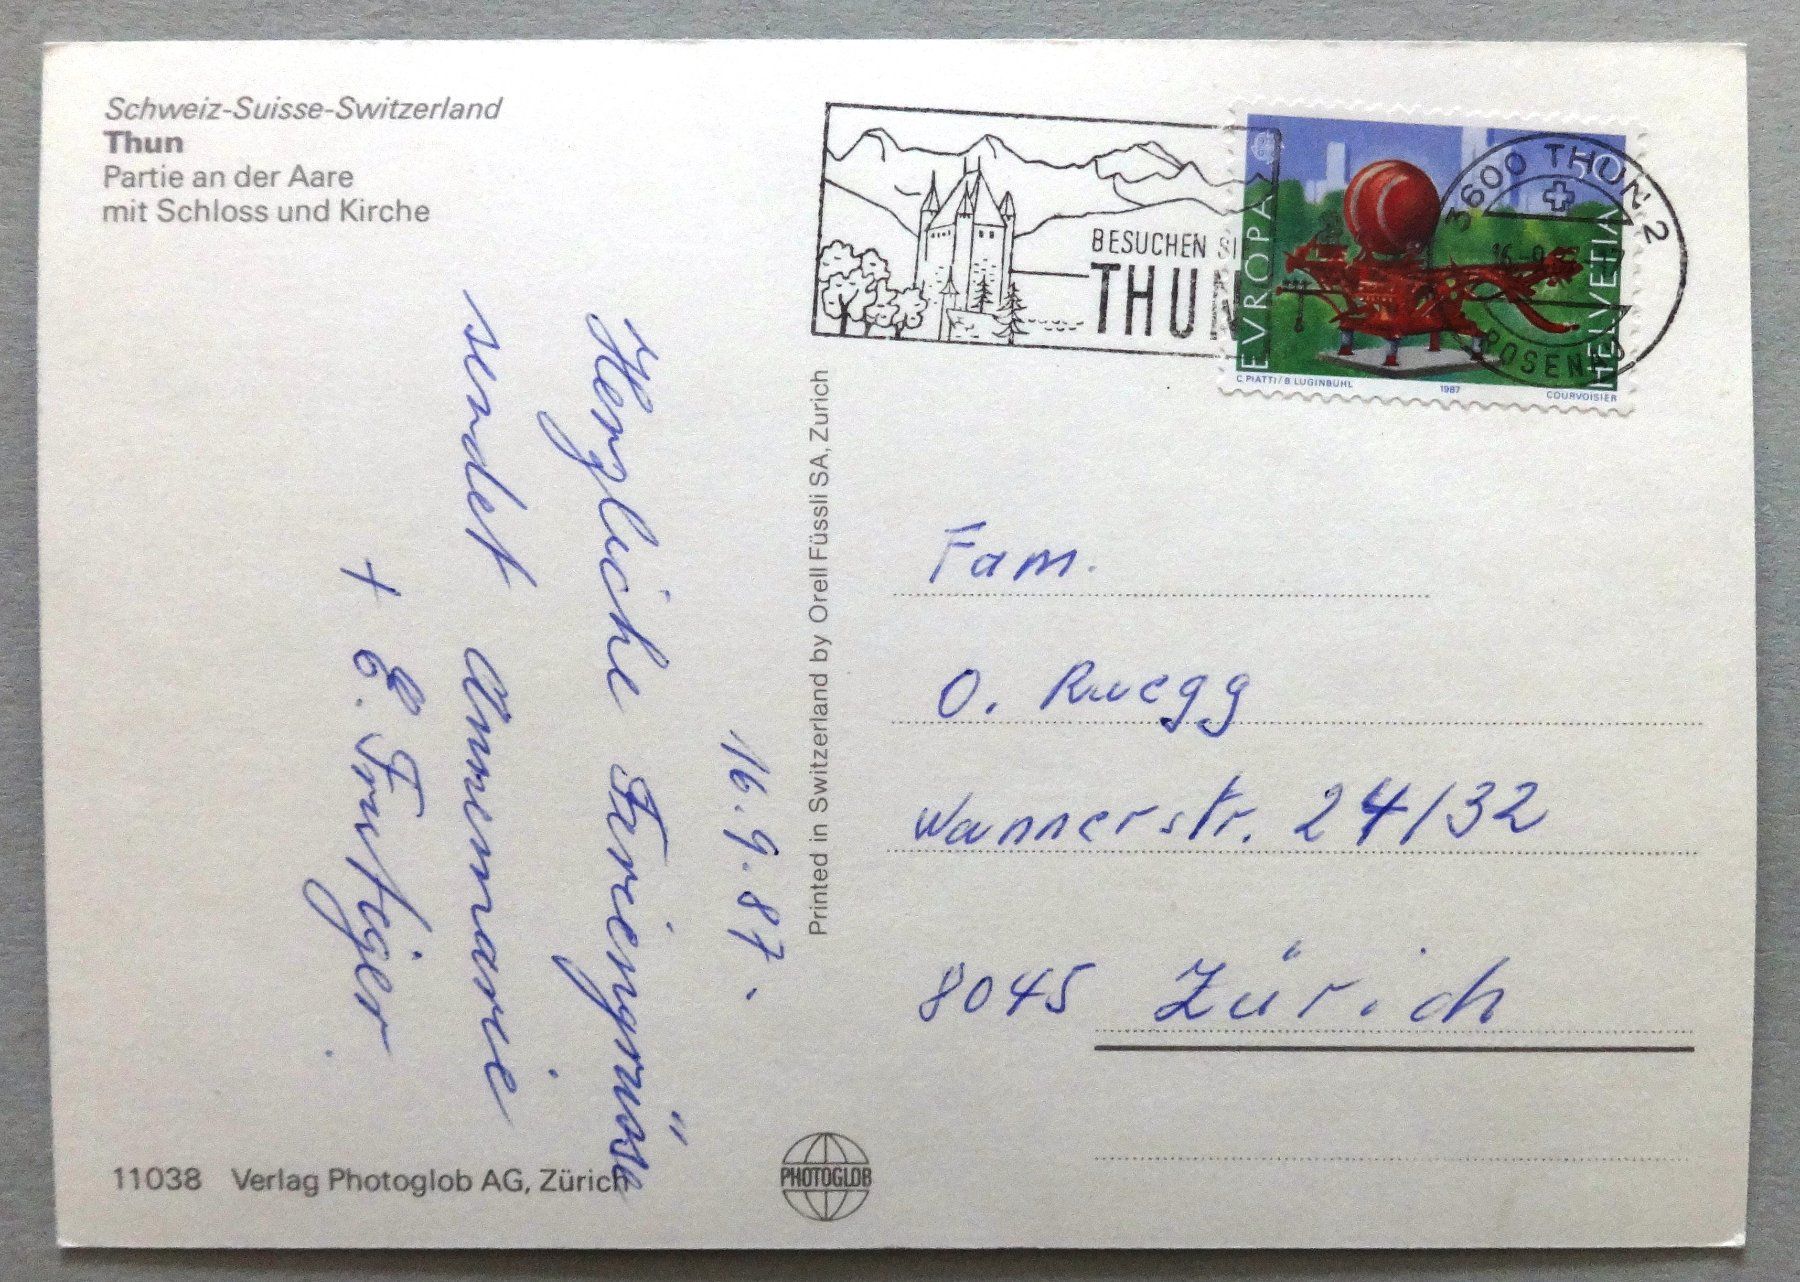 Schweiz-Suisse-Switzerland
Thun
Partie an der Aare
mit Schloss und Kirche
BESUCHEN SI
THUN
EVROPA
HELVETIA
C. PIATTI / B. LUGINBÜHL 1987 COURVOISIER
3600 THUN 2
16.-9.
ROSENAU
16.9.87.
Herzliche Feriengrüsse
sendet Annemarie
+ E. Frutiger
Printed in Switzerland by Orell Füssli SA, Zurich
Fam.
O. Ruegg
Wannerstr. 24/32
8045 Zürich
11038 Verlag Photoglob AG, Zürich
PHOTOGLOB